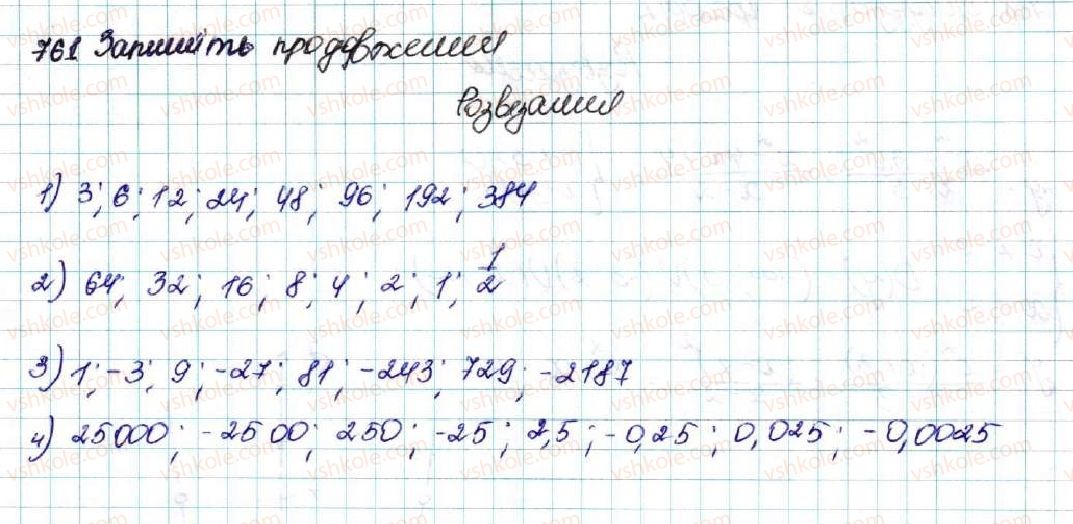 761 Запишіть продовження
Розвезання
1) 3; 6; 12; 24; 48; 96; 192; 384
2) 64; 32; 16; 8; 4; 2; 1; 1/2
3) 1; -3; 9; -27; 81; -243; 729; -2187
4) 25000; -2500; 250; -25; 2,5; -0,25; 0,025; -0,0025